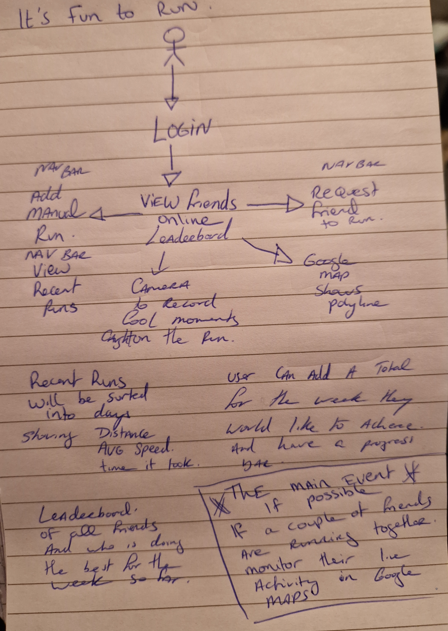 It's Fun to Run.
LOGIN
NAV BAR
Add
Manual
Run.
NAV BAR
View
Recent
Runs
VIEW friends
online
Leaderbord
NAV BAR
Request
friend
to Run.
Google
map
Shows
polyline
CAMERA
to Record
Cool moments
on the Run.
Recent Runs
will be sorted
into days
showing Distance
AVG Speed.
time it took.
User CAN Add A Total
for the week they
would like to Achieve.
And have a progress
bar.
Leaderbord.
of all friends
And who is doing
the best for the
week so far.
THE MAIN EVENT
If possible
If a couple of friends
Are Running together
monitor their live
Activity on Google
MAPS